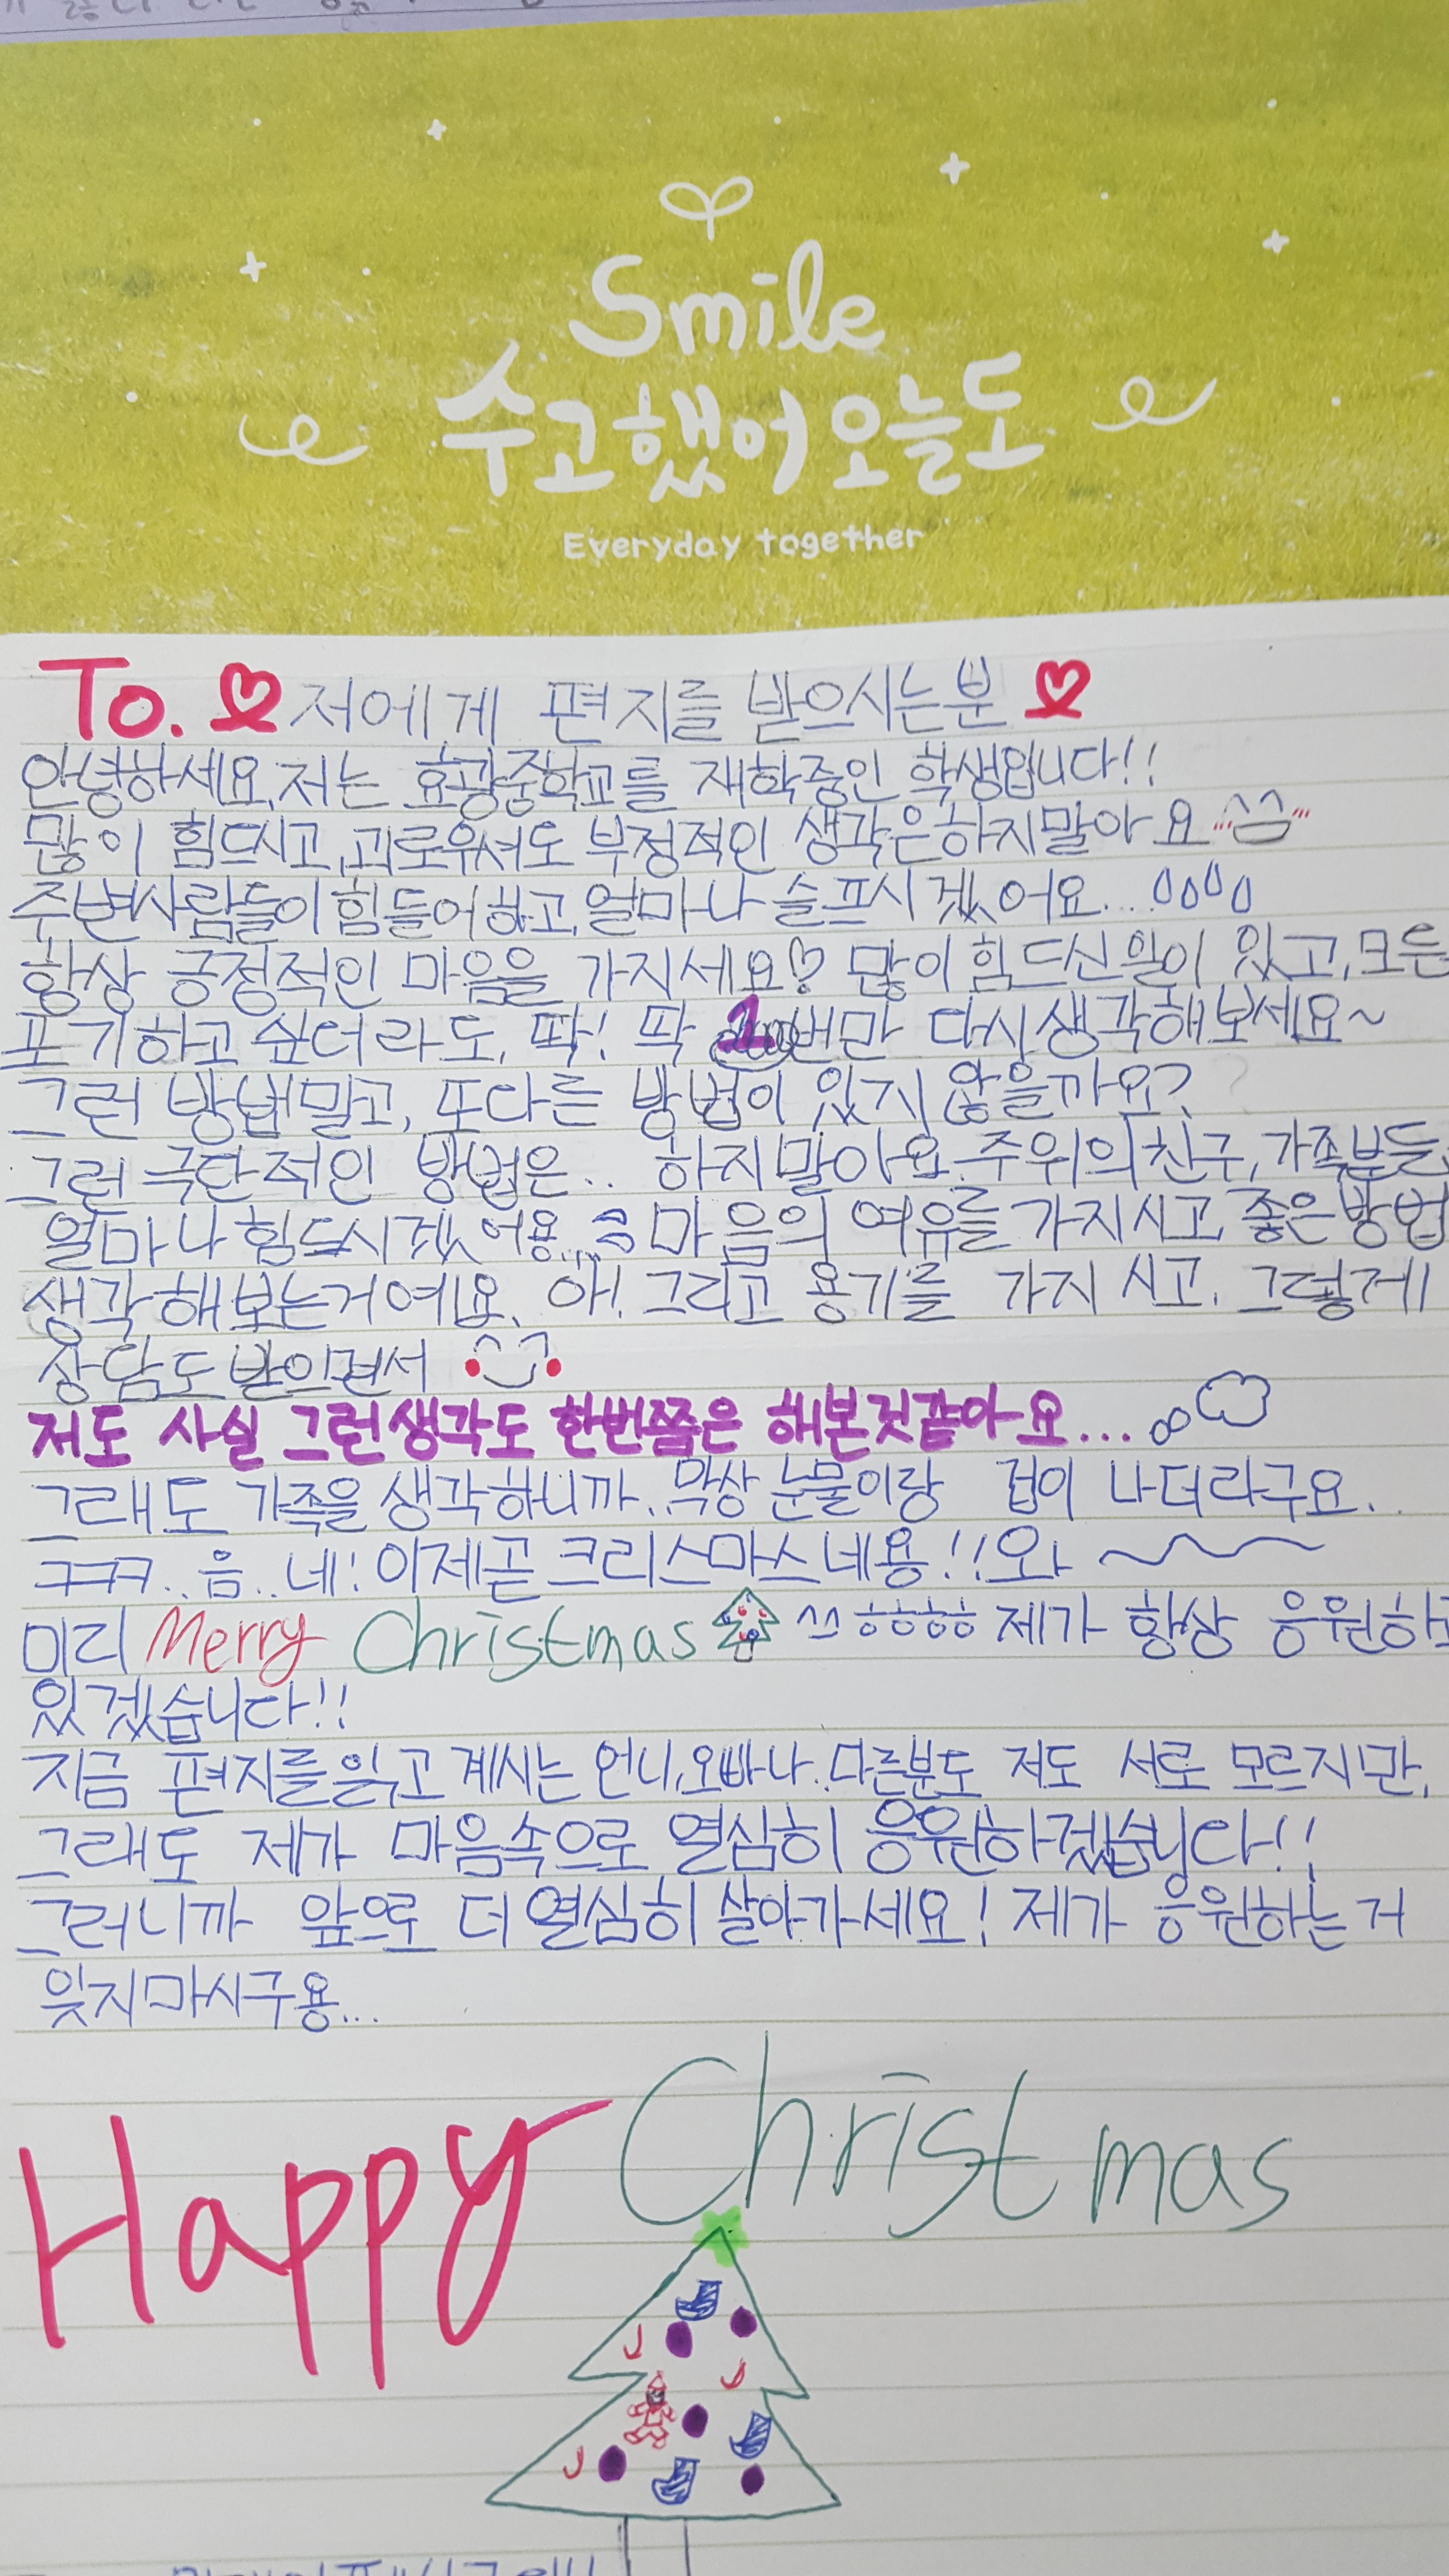 Smile
수고했어 오늘도
Everyday together
To. 저에게 편지를 받으시는분
안녕하세요, 저는 효광중학교를 재학중인 학생입니다!!
많이 힘드시고, 괴로우셔도 부정적인 생각은하지말아요...^^...
주변사람들이 힘들어하고, 얼마나 슬프시겠어요...
항상 긍정적인 마음을 가지세요♡ 많이 힘드신일이 있고, 모든
포기하고 싶더라도, 딱! 딱 2번만 다시생각해보세요~
그런 방법말고, 또다른 방법이 있지 않을까요?
그런 극단적인 방법은.. 하지말아요. 주위의친구, 가족분들,
얼마나힘드시겠어용... 마음의 여유를 가지시고, 좋은방법
생각해보는거예요. 아! 그리고 용기를 가지시고, 그렇게
상담도받으면서
저도 사실 그런생각도 한번쯤은 해본것같아요...
그래도 가족을생각하니까.. 막상 눈물이랑 겁이 나더라구요..
ㅋㅋㅋ..음..네! 이제곧크리스마스네용!!와~
미리 Merry Christmas ^^ㅎㅎㅎㅎ 제가 항상 응원하고
있겠습니다!!
지금 편지를읽고계시는언니,오빠나..다른분도 저도 서로 모르지만,
그래도 제가 마음속으로 열심히 응원하겠습니다!!
그러니까 앞으로 더열심히살아가세요! 제가 응원하는거
잊지마시구용...
Happy Christmas